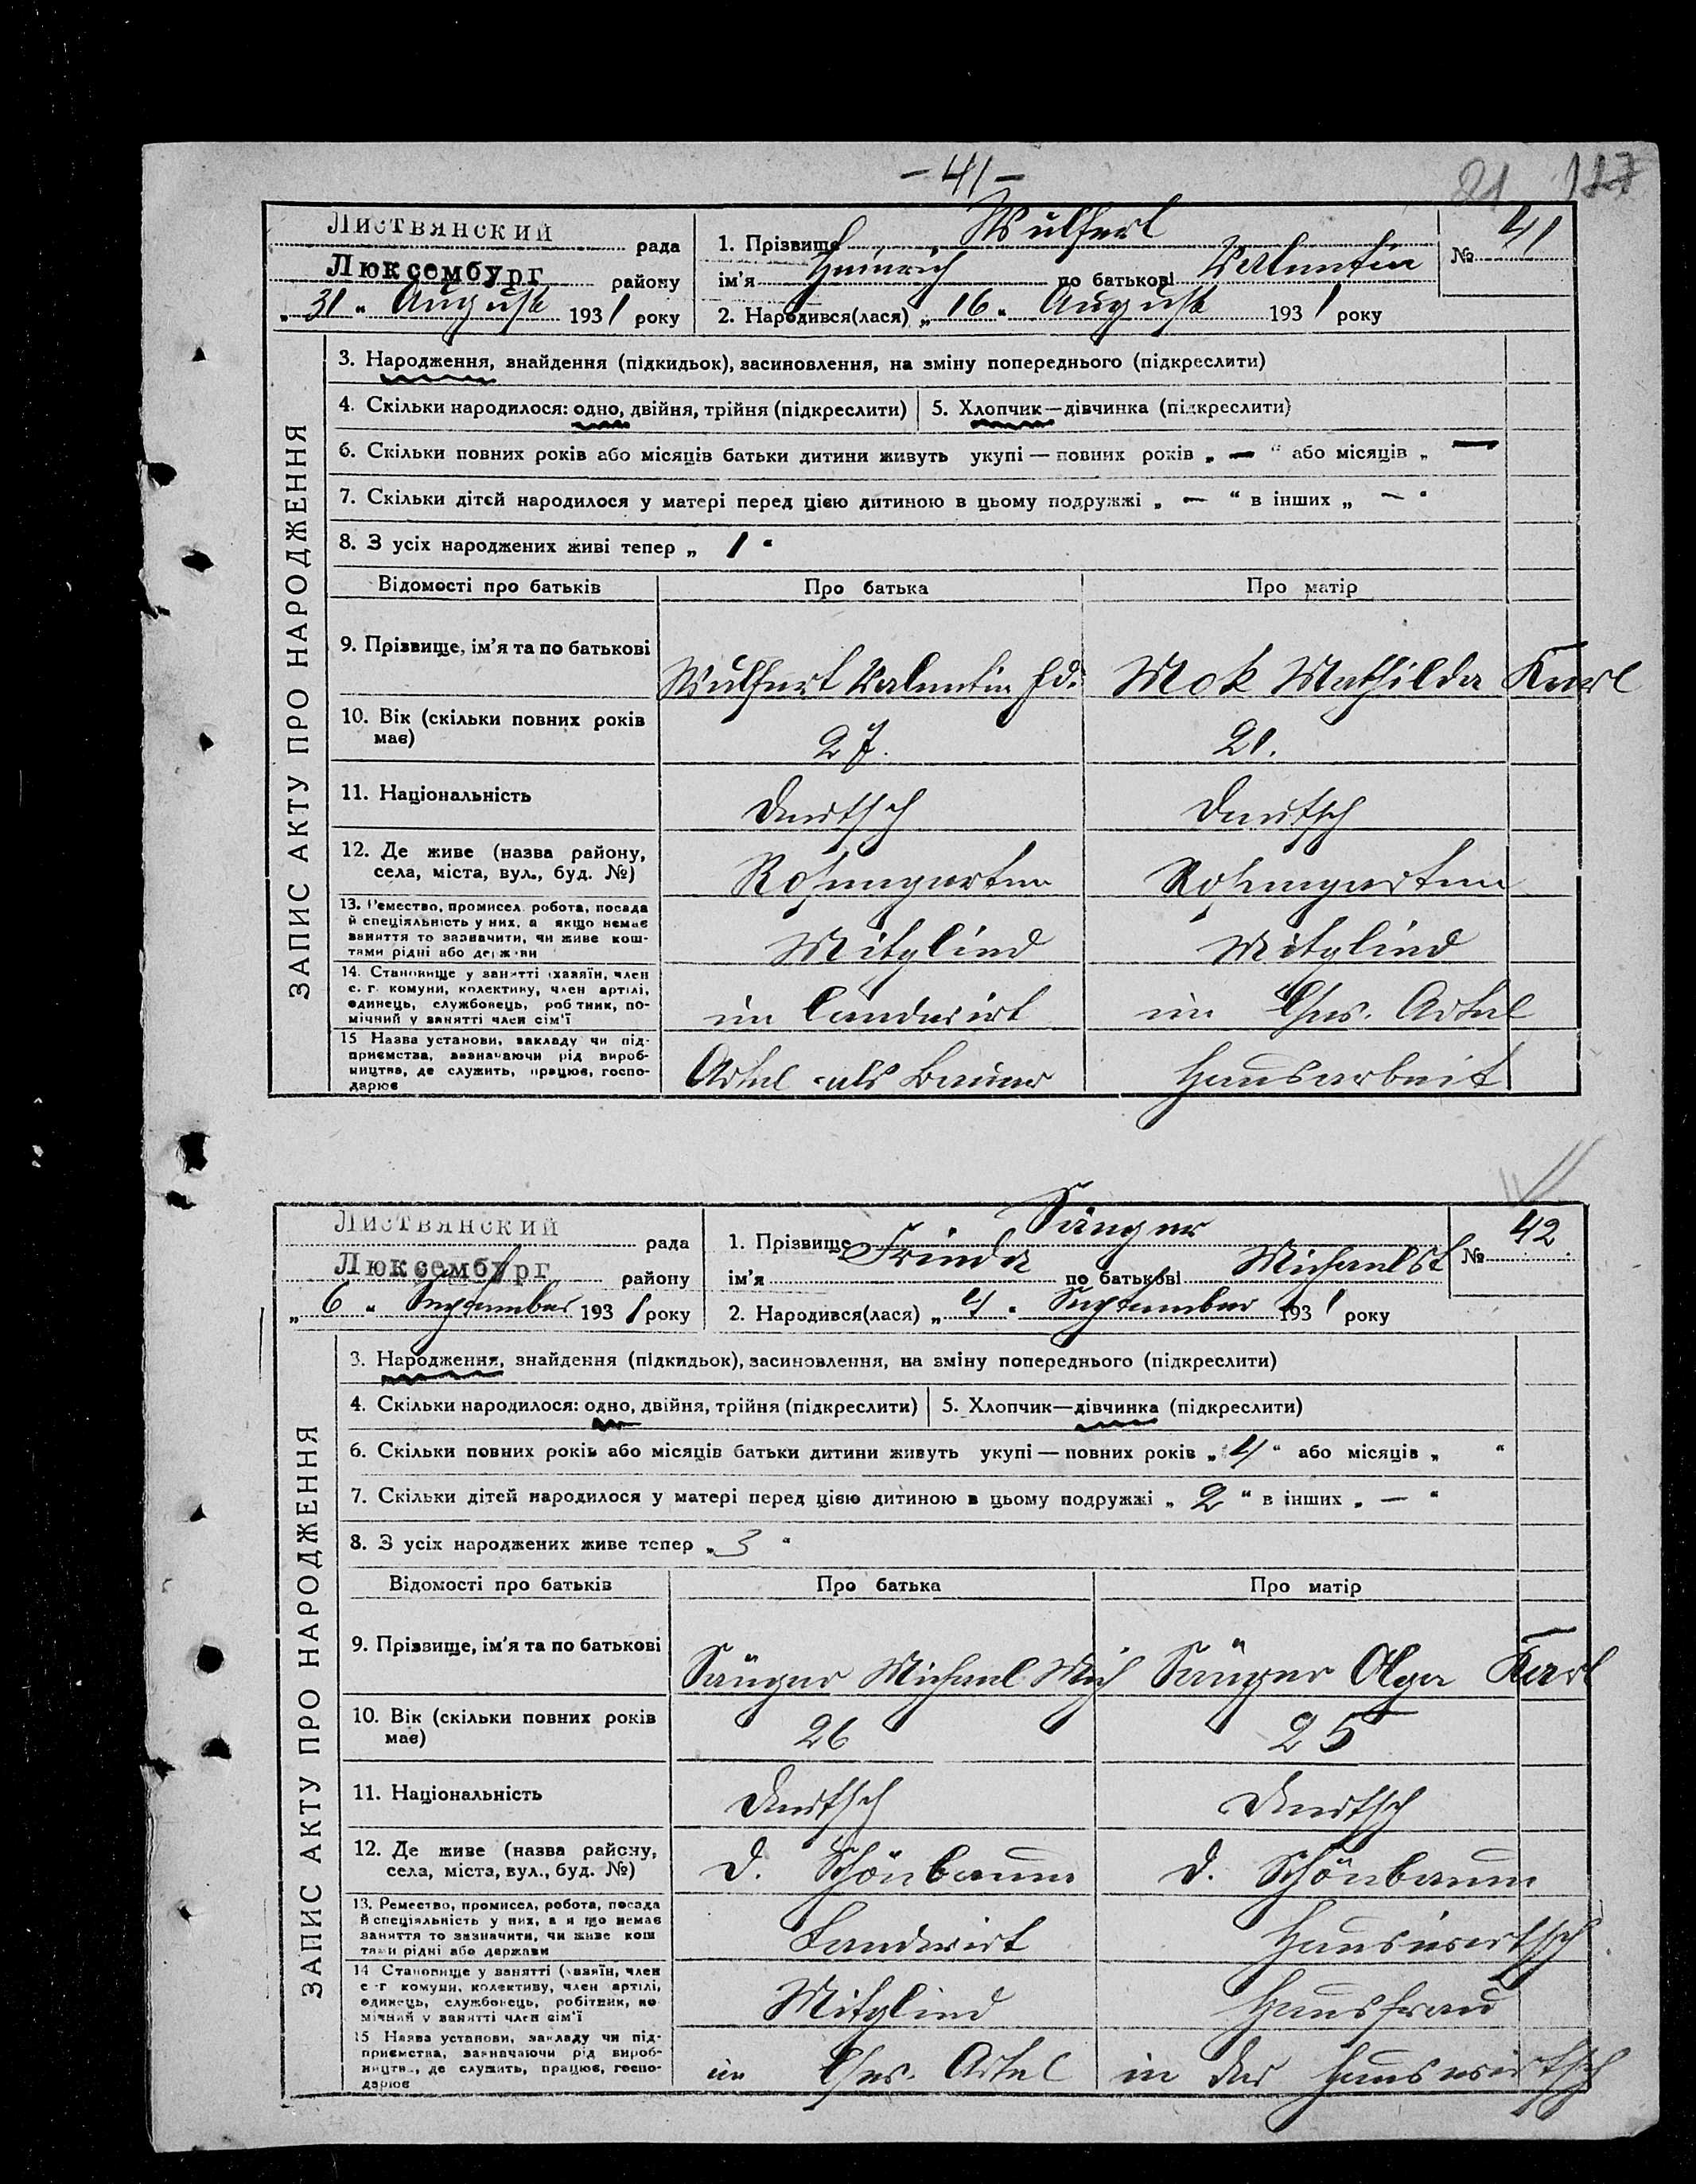 – 41 –
21 127
Листвянский рада
Люксембург району
„ 31 “ August 1931 року
1. Прізвище Wulfert
ім'я Heinrich по батькові Valentin
2. Народився(лася) „ 16 “ August 1931 року
№ 41
ЗАПИС АКТУ ПРО НАРОДЖЕННЯ
3. Народження, знайдення (підкидьок), засиновлення, на зміну попереднього (підкреслити)
4. Скільки народилося: одно, двійня, трійня (підкреслити) 5. Хлопчик—дівчинка (підкреслити)
6. Скільки повних років або місяців батьки дитини живуть укупі — повних років „ — “ або місяців „ —
7. Скільки дітей народилося у матері перед цією дитиною в цьому подружжі „ — “ в інших „ — “
8. З усіх народжених живі тепер „ 1 “
Відомості про батьків Про батька Про матір
9. Прізвище, ім'я та по батькові Wulfert Valentin Ed. Mok Mathilda Karl
10. Вік (скільки повних років має) 27. 21.
11. Національність Deutsch Deutsch
12. Де живе (назва району, села, міста, вул., буд. №) Rosengarten Rosengarten
13. Ремество, промисел, робота, посада й спеціяльність у них, а якщо немає заняття то зазначити, чи живе коштами рідні або держави Mitglied Mitglied
14. Становище у занятті (хазяїн, член с. г. комуни, колективу, член артілі, одинець, службовець, робітник, помічний у занятті член сім'ї im Landwirt im Ghs. Artel
15 Назва установи, закладу чи підприємства, зазначаючи рід виробництва, де служить, працює, господарює Artel als Bauer Hausarbeit
Листвянский рада
Люксембург району
„ 6 “ September 1931 року
1. Прізвище Sänger
ім'я Frieda по батькові Michaelst
2. Народився(лася) „ 4 “ September 1931 року
№ 42.
ЗАПИС АКТУ ПРО НАРОДЖЕННЯ
3. Народження, знайдення (підкидьок), засиновлення, на зміну попереднього (підкреслити)
4. Скільки народилося: одно, двійня, трійня (підкреслити) 5. Хлопчик—дівчинка (підкреслити)
6. Скільки повних років або місяців батьки дитини живуть укупі — повних років „ 4 “ або місяців „ “
7. Скільки дітей народилося у матері перед цією дитиною в цьому подружжі „ 2 “ в інших „ — “
8. З усіх народжених живе тепер „ 3 “
Відомості про батьків Про батька Про матір
9. Прізвище, ім'я та по батькові Sänger Michael Mich Sänger Olga Karl
10. Вік (скільки повних років має) 26 25
11. Національність Deutsch Deutsch
12. Де живе (назва району, села, міста, вул., буд. №) D. Schönbaum D. Schönbaum
13. Ремество, промисел, робота, посада й спеціяльність у них, а якщо немає заняття то зазначити, чи живе коштами рідні або держави Landwirt Hauswirtsch
14 Становище у занятті (хазяїн, член с.-г комуни, колективу, член артілі, одинець, службовець, робітник, помічний у занятті член сім'ї Mitglied Hausfrau
15 Назва установи, закладу чи підприємства, зазначаючи рід виробництв., де служить, працює, господарює im Ghs. Artel in der Hauswirtsch